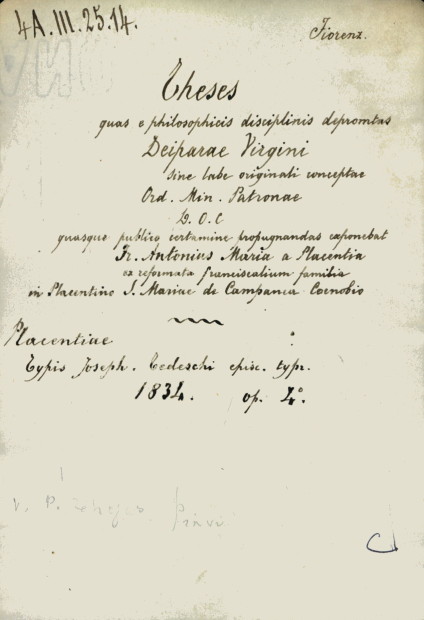 4A.III.25.14.
Fiorenz.
Theses
quas e philosophicis disciplinis depromtas
Deiparae Virgini
sine labe originali conceptae
Ord. Min. Patronae
D. O. C
quasque publico certamine propugnandas exponebat
Fr. Antonius Maria a Placentia
ex reformata franciscalium familia
in Placentino S. Mariae de Campanea Coenobio
Placentiae
Typis Joseph. Tedeschi episc. typr.
1834. op. 4°.